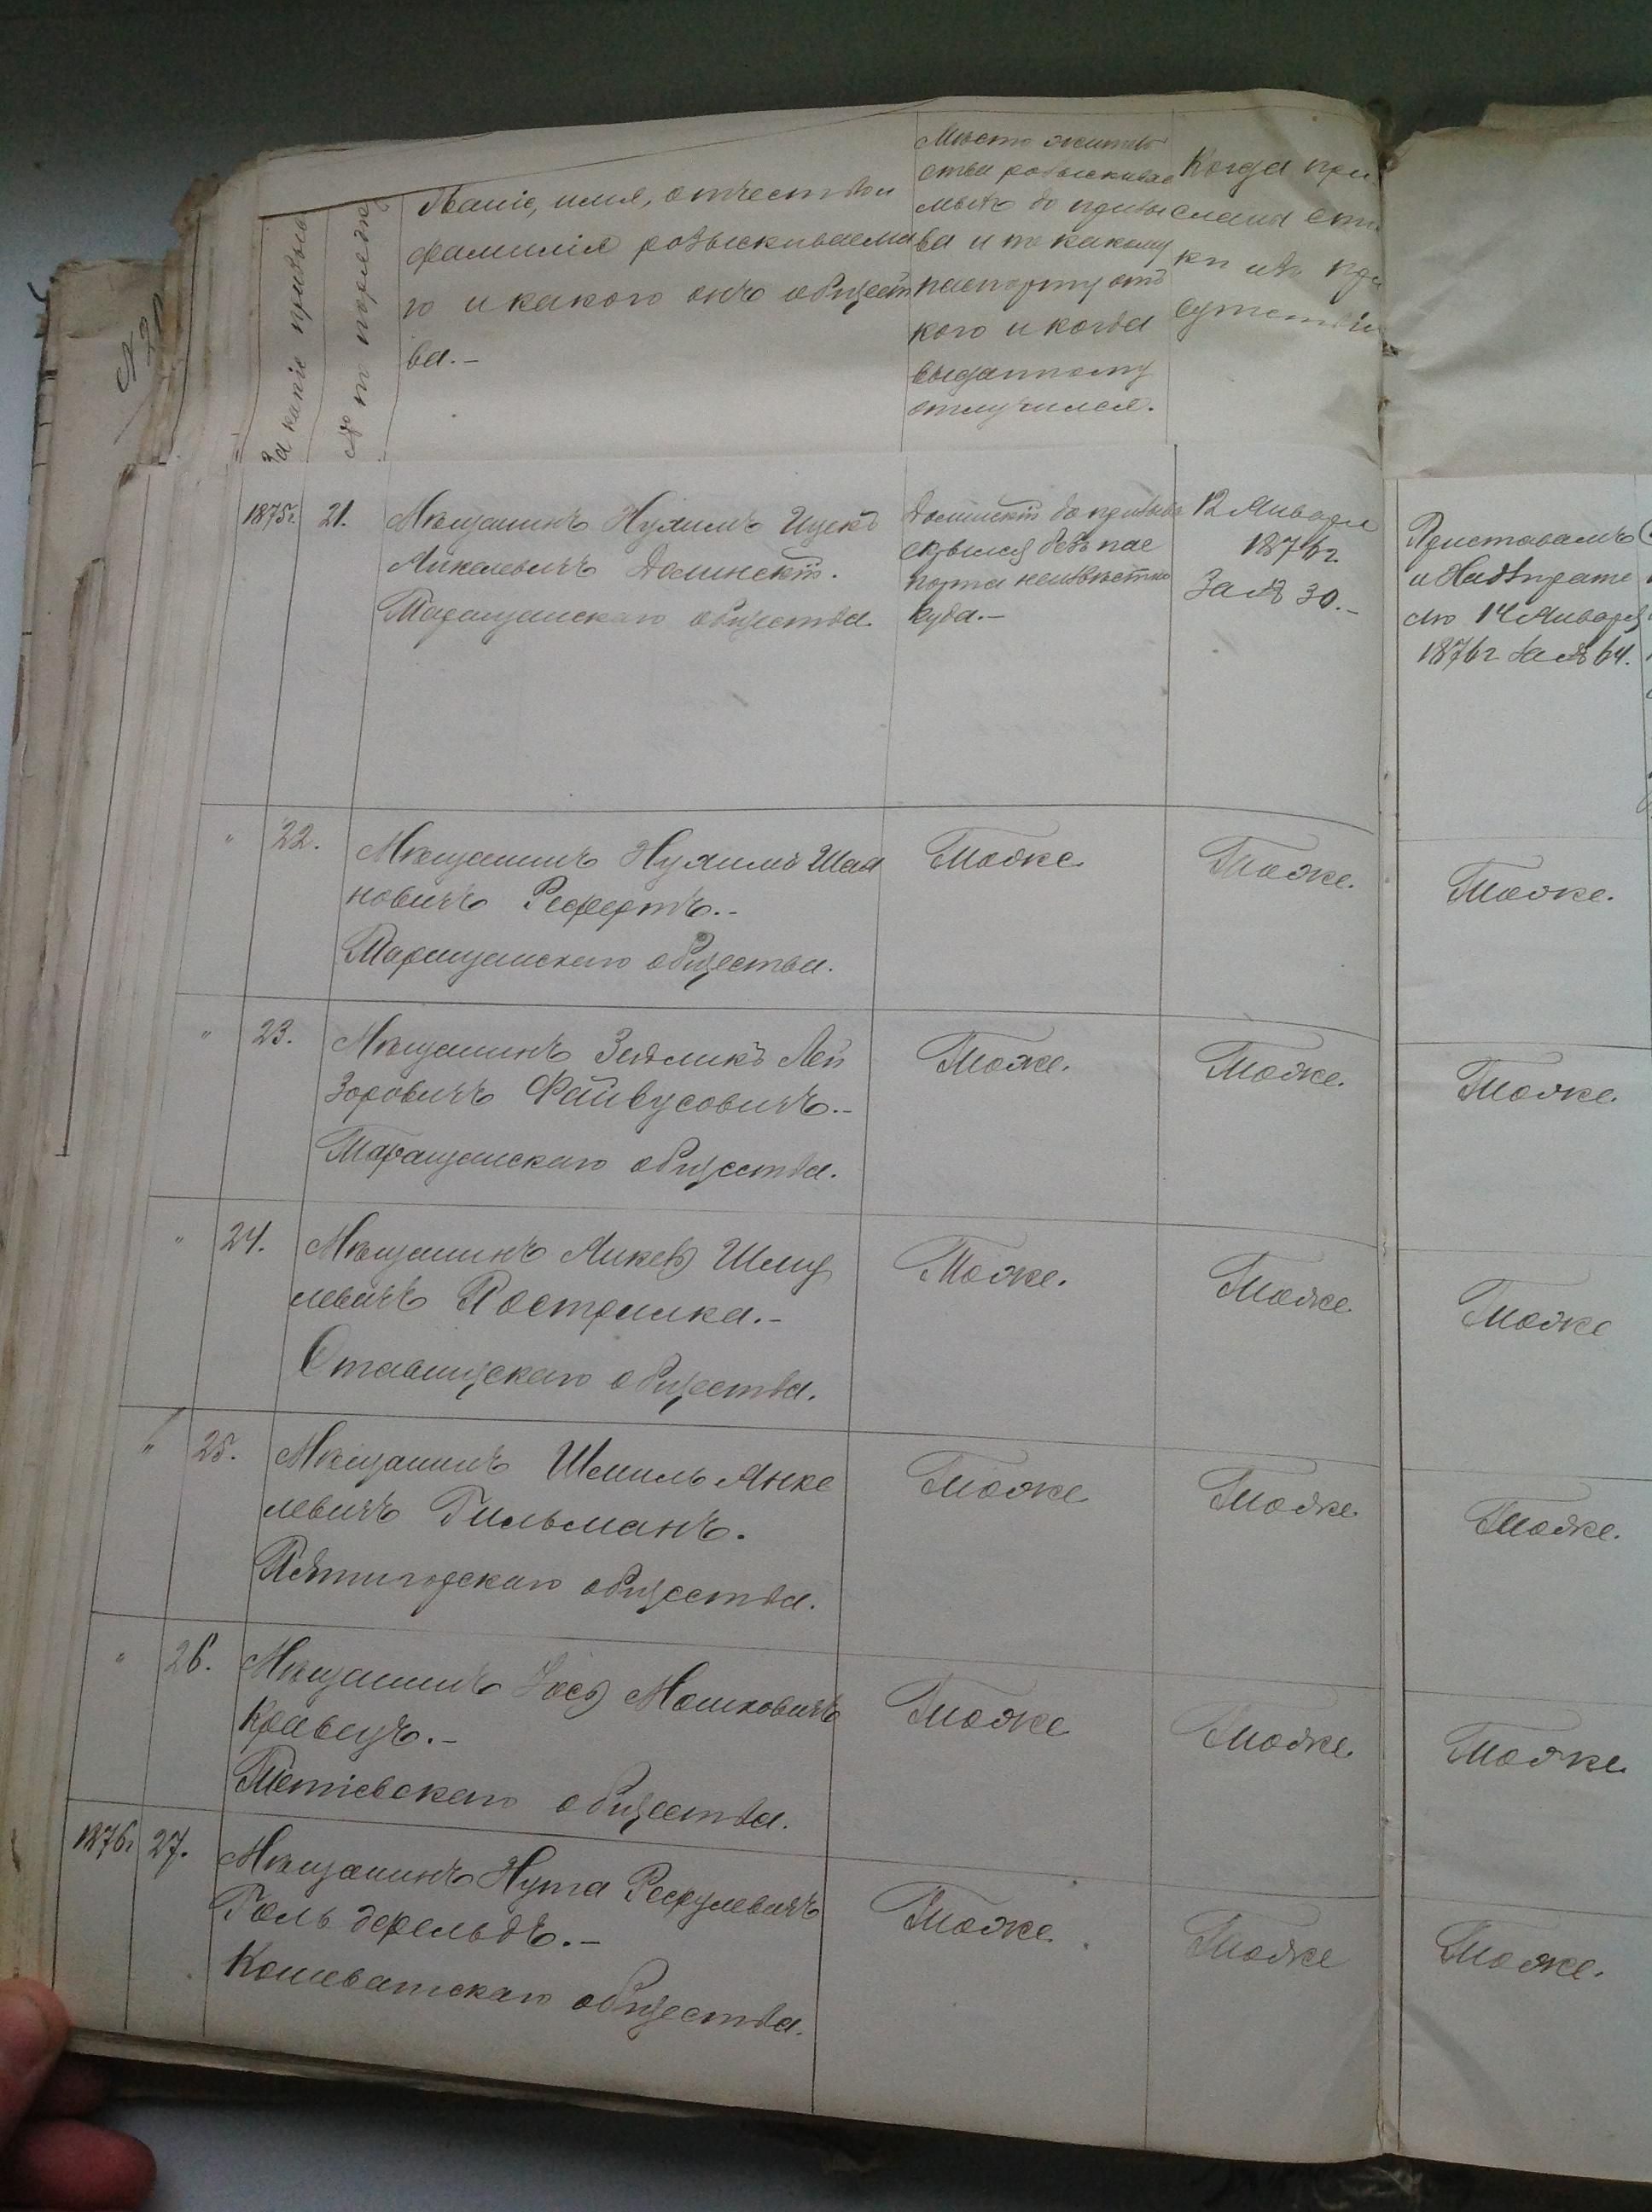 За какіе призывы
№ по порядку
Званіе, имя, отчество и
фамилія розыскиваема
го и какого онъ общест
ва.-
Мѣсто житель
ства розыскивае
мыхъ до призы
ва и по какому
паспорту отъ
кого и когда
выданному
отлучился.
Когда при
сланы спи
ки изъ при
сутствія
1875г. 21. Мѣщанинъ Нухимъ Ицекъ
Янкелевичъ Долинскій.
Таращанскаго общества.
Долинскій до призыва
скрылся безъ пас
порта неизвѣстно
куда.-
12 Января
1876г.
За № 30.-
Приставамъ
и Надзирате
лю 14 Января
1876г за № 64.
" 22. Мѣщанинъ Нухимъ Шая
новичъ Рефертъ.-
Таращанскаго общества.
Тоже
Тоже.
Тоже.
" 23. Мѣщанинъ Зейликъ Лей
зоровичъ Файвусовичъ.-
Таращанскаго общества.
Тоже.
Тоже.
Тоже.
" 24. Мѣщанинъ Янкель Шму
левичъ Костримка.-
Ставищскаго общества.
Тоже.
Тоже
Тоже
" 25. Мѣщанинъ Шмиль Янке
левичъ Гильманъ.
Пятигорскаго общества.
Тоже
Тоже
Тоже.
" 26. Мѣщанинъ Іось Мошковичъ
Кравецъ.-
Тетіевскаго общества.
Тоже
Тоже.
Тоже
1876г 27. Мѣщанинъ Нута Рефулевичъ
Гольдфельдъ.-
Кошеватскаго общества.
Тоже.
Тоже
Тоже.